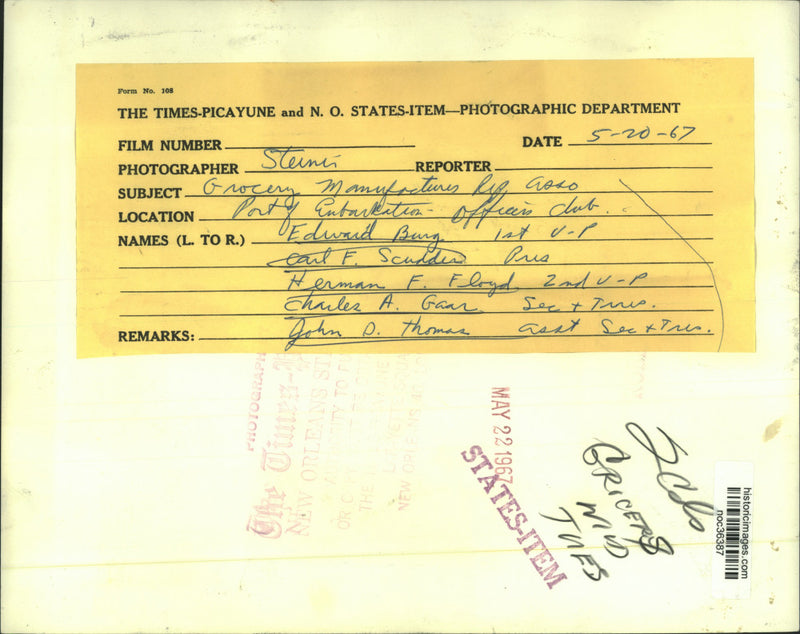 Form No. 108
THE TIMES-PICAYUNE and N. O. STATES-ITEM—PHOTOGRAPHIC DEPARTMENT
FILM NUMBER
DATE 5-20-67
PHOTOGRAPHER
REPORTER
SUBJECT Grocery Manufactures Rep. Asso
LOCATION Port of Embarkation - Officers Club.
NAMES (L. TO R.) Edward Burg 1st V-P
Carl F. Scudder Pres
Herman F. Floyd 2nd V-P
Charles A. Gaar Sec + Tres.
REMARKS: John D. Thomas asst Sec + Tres.
PHOTOGRAPH
The Times-
NEW ORLEANS ST
OR C
THE
LAFAYETTE SQUA
NEW ORLEANS 40
MAY 22 1967
STATES-ITEM
2 Cols
GRICERS
MUD
TUES
historicimages.com
noc36387